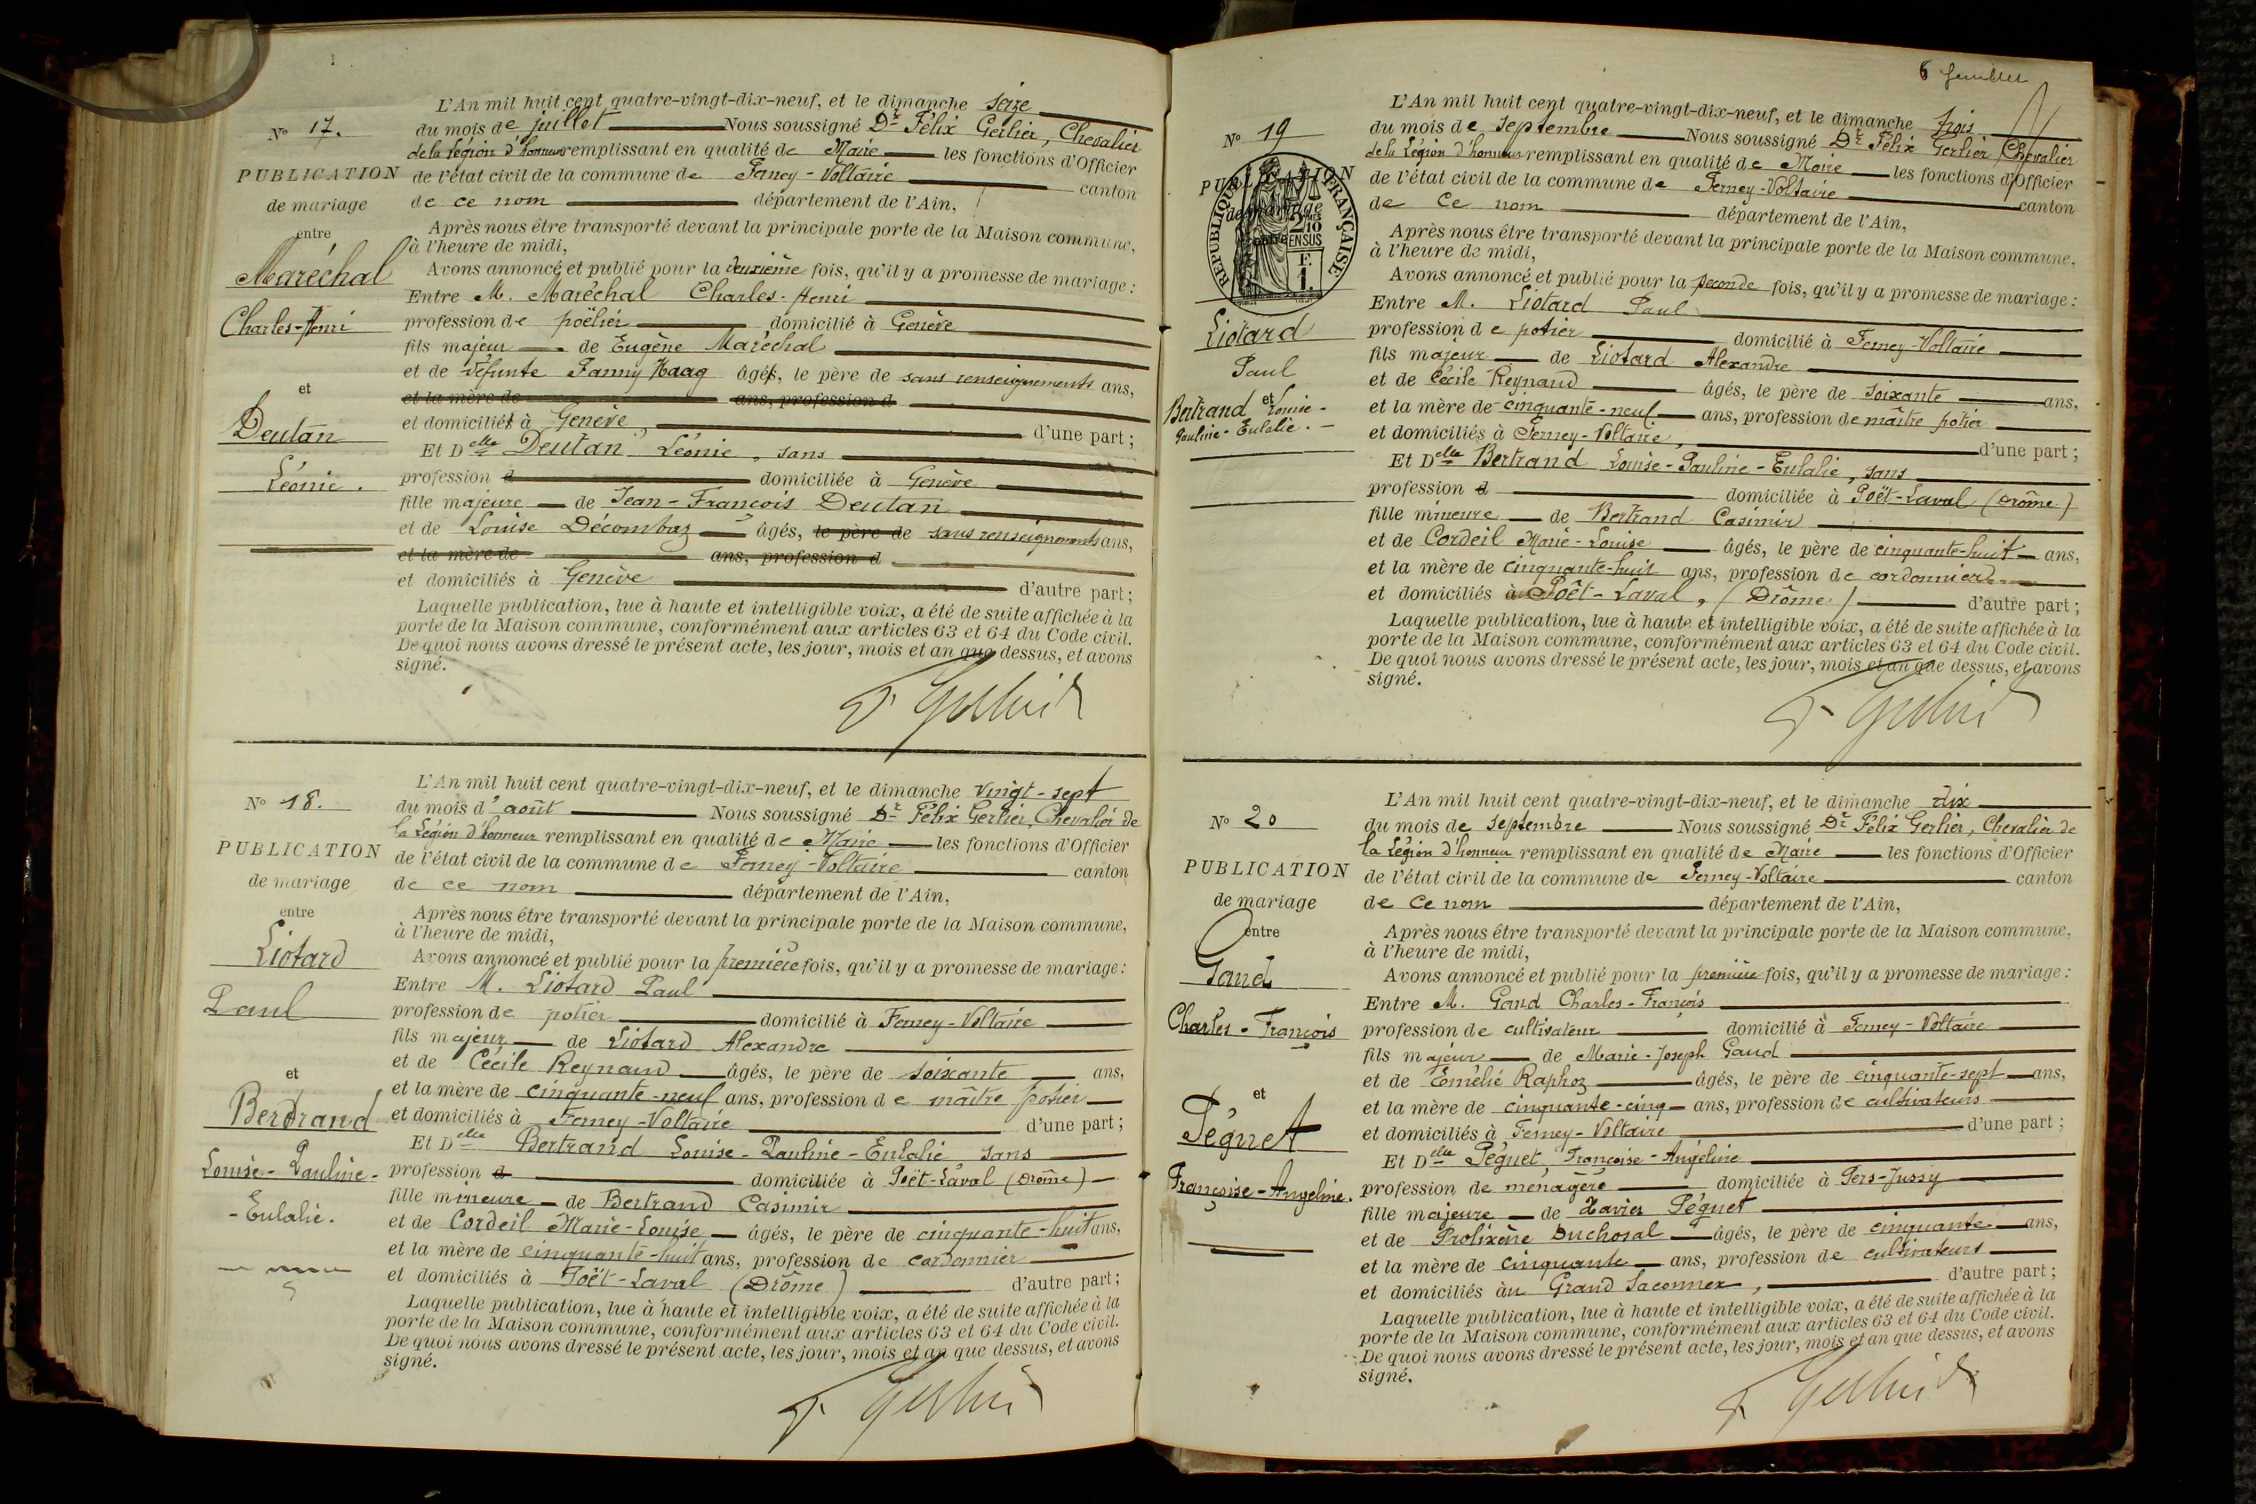 L'An mil huit cent quatre-vingt-dix-neuf, et le dimanche seize
No 17.
du mois de juillet Nous soussigné Dr Félix Gerlier, Chevalier
de la Légion d'honneur remplissant en qualité de Maire les fonctions d'Officier
PUBLICATION
de l'état civil de la commune de Ferney-Voltaire canton
de mariage
de ce nom département de l'Ain,
entre
Après nous être transporté devant la principale porte de la Maison commune,
à l'heure de midi,
Maréchal
Avons annoncé et publié pour la deuxième fois, qu'il y a promesse de mariage :
Entre M. Maréchal Charles-Henri
Charles-Henri
profession de poëlier domicilié à Genève
fils majeur de Eugène Maréchal
et de défunte Fanny Haag âgés, le père de sans renseignements ans,
et
et la mère de ans, profession d
et domiciliés à Genève, d'une part ;
Deutan
Et Delle Deutan Léonie, sans
Léonie.
profession d domiciliée à Genève
fille majeure de Jean-François Deutan
et de Louise Décombaz âgés, le père de sans renseignements ans,
et la mère de ans, profession d
et domiciliés à Genève d'autre part ;
Laquelle publication, lue à haute et intelligible voix, a été de suite affichée à la
porte de la Maison commune, conformément aux articles 63 et 64 du Code civil.
De quoi nous avons dressé le présent acte, les jour, mois et an que dessus, et avons
signé.
F. Gerlier
L'An mil huit cent quatre-vingt-dix-neuf, et le dimanche vingt-sept
No 18.
du mois d'août Nous soussigné Dr Félix Gerlier, Chevalier de
la Légion d'honneur remplissant en qualité de Maire les fonctions d'Officier
PUBLICATION
de l'état civil de la commune de Ferney-Voltaire canton
de mariage
de ce nom département de l'Ain,
entre
Après nous être transporté devant la principale porte de la Maison commune,
à l'heure de midi,
Liotard
Avons annoncé et publié pour la première fois, qu'il y a promesse de mariage :
Entre M. Liotard Paul
Paul
profession de potier domicilié à Ferney-Voltaire
fils majeur de Liotard Alexandre
et de Cécile Reynaud âgés, le père de soixante ans,
et
et la mère de cinquante-neuf ans, profession de maître potier
Bertrand
et domiciliés à Ferney-Voltaire d'une part ;
Et Delle Bertrand Louise-Pauline-Eulalie sans
Louise-Pauline-
profession d domiciliée à Poët-Laval (Drôme)
fille mineure de Bertrand Casimir
-Eulalie.
et de Cordeil Marie-Louise âgés, le père de cinquante-huit ans,
et la mère de cinquante-huit ans, profession de cordonnier
et domiciliés à Poët-Laval (Drôme) d'autre part ;
Laquelle publication, lue à haute et intelligible voix, a été de suite affichée à la
porte de la Maison commune, conformément aux articles 63 et 64 du Code civil.
De quoi nous avons dressé le présent acte, les jour, mois et an que dessus, et avons
signé.
F. Gerlier
6
L'An mil huit cent quatre-vingt-dix-neuf, et le dimanche trois
No 19
du mois de septembre Nous soussigné Dr Félix Gerlier, Chevalier
de la Légion d'honneur remplissant en qualité de Maire les fonctions d'Officier
PUBLICATION
de l'état civil de la commune de Ferney-Voltaire canton
de mariage
de ce nom département de l'Ain,
entre
RÉPUBLIQUE FRANÇAISE
2/10 EN SUS
F. 1.
Après nous être transporté devant la principale porte de la Maison commune,
à l'heure de midi,
Avons annoncé et publié pour la seconde fois, qu'il y a promesse de mariage :
Entre M. Liotard Paul
Liotard
profession de potier domicilié à Ferney-Voltaire
fils majeur de Liotard Alexandre
Paul
et de Cécile Reynaud âgés, le père de soixante ans,
et
Bertrand Louise-
et la mère de cinquante-neuf ans, profession de maître potier
Pauline-Eulalie.
et domiciliés à Ferney-Voltaire, d'une part ;
Et Delle Bertrand Louise-Pauline-Eulalie, sans
profession d domiciliée à Poët-Laval (Drôme)
fille mineure de Bertrand Casimir
et de Cordeil Marie-Louise âgés, le père de cinquante-huit ans,
et la mère de cinquante-huit ans, profession de cordonnier
et domiciliés à Poët-Laval, (Drôme) d'autre part ;
Laquelle publication, lue à haute et intelligible voix, a été de suite affichée à la
porte de la Maison commune, conformément aux articles 63 et 64 du Code civil.
De quoi nous avons dressé le présent acte, les jour, mois et an que dessus, et avons
signé.
F. Gerlier
L'An mil huit cent quatre-vingt-dix-neuf, et le dimanche dix
No 20
du mois de septembre Nous soussigné Dr Félix Gerlier, Chevalier de
la Légion d'honneur remplissant en qualité de Maire les fonctions d'Officier
PUBLICATION
de l'état civil de la commune de Ferney-Voltaire canton
de mariage
de ce nom département de l'Ain,
entre
Après nous être transporté devant la principale porte de la Maison commune,
à l'heure de midi,
Gaud
Avons annoncé et publié pour la première fois, qu'il y a promesse de mariage :
Entre M. Gaud Charles-François
Charles-François
profession de cultivateur domicilié à Ferney-Voltaire
fils majeur de Marie-Joseph Gaud
et de Emélie Raphoz âgés, le père de cinquante-sept ans,
et
et la mère de cinquante-cinq ans, profession de cultivateurs
Péguet
et domiciliés à Ferney-Voltaire d'une part ;
Et Delle Péguet, Françoise-Angéline
Françoise-Angeline.
profession de ménagère domiciliée à Pers-Jussy
fille majeure de Xavier Péguet
et de Prolixène Duchosal âgés, le père de cinquante ans,
et la mère de cinquante ans, profession de cultivateurs
et domiciliés àu Grand Saconnex, d'autre part ;
Laquelle publication, lue à haute et intelligible voix, a été de suite affichée à la
porte de la Maison commune, conformément aux articles 63 et 64 du Code civil.
De quoi nous avons dressé le présent acte, les jour, mois et an que dessus, et avons
signé.
F. Gerlier